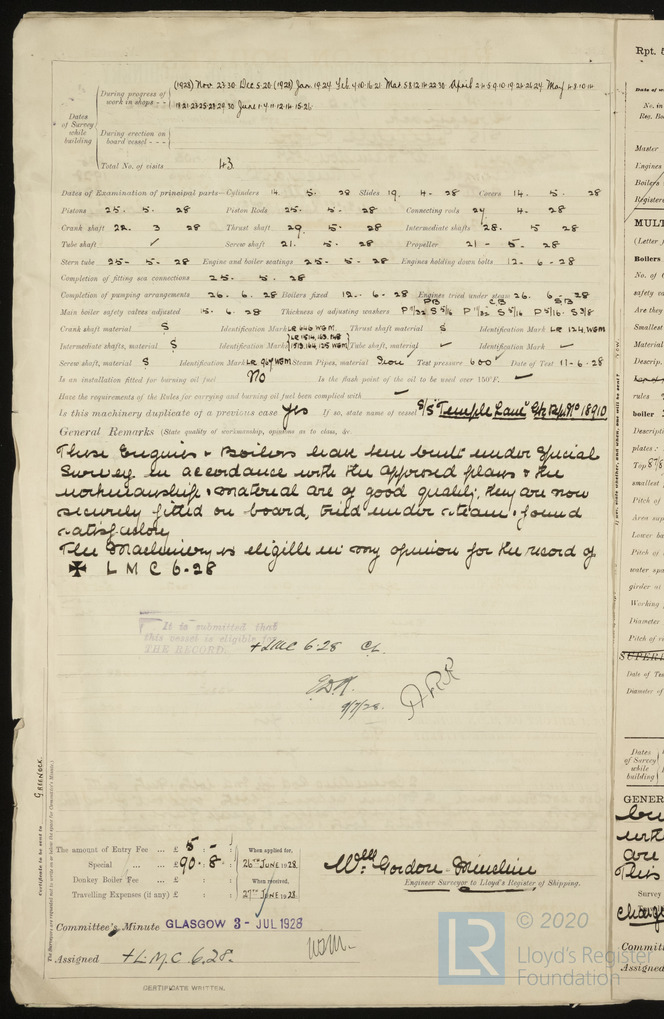 (1928) Nov 23.30 Dec 5.20 (1928) Jan 19.24 Feb 4.10.16.21 Mar 5.8.12.16.22.30 April 2.4.5.9.10.19.24.26.24 May 4.8.10.14
18.21.23.25.28.29.30 June 1.4.11.12.14.15.26
During progress of work in shops - -
Dates of Survey while building
During erection on board vessel - - -
Total No. of visits 43
Dates of Examination of principal parts—Cylinders 14. 5. 28 Slides 19. 4. 28 Covers 14. 5. 28
Pistons 25. 5. 28 Piston Rods 25. 5. 28 Connecting rods 24 4. 28
Crank shaft 22. 3 28 Thrust shaft 29. 5. 28 Intermediate shafts 28. 5 28
Tube shaft ✓ Screw shaft 21. 5. 28 Propeller 21 - 5. 28
Stern tube 25. 5. 28 Engine and boiler seatings 25. 5. 28 Engines holding down bolts 12. 6. 28
Completion of fitting sea connections 25. 5. 28
Completion of pumping arrangements 26. 6. 28 Boilers fixed 12. 6. 28 Engines tried under steam 26. 6. 28
Main boiler safety valves adjusted 15. 6. 28 Thickness of adjusting washers PB CB SB P 11/32 S 5/16 P 11/32 S 5/16 P 5/16 S 3/8
Crank shaft material S Identification Mark LR 646 WGM Thrust shaft material S Identification Mark LR 124.WGM
Intermediate shafts, material S Identification Marks Tube shaft, material ✓ Identification Mark ✓
Screw shaft, material S Identification Mark LR 967 WGM Steam Pipes, material Iron Test pressure 600 Date of Test 11-6-28
Is an installation fitted for burning oil fuel No Is the flash point of the oil to be used over 150°F. ✓
Have the requirements of the Rules for carrying and burning oil fuel been complied with ✓
Is this machinery duplicate of a previous case Yes If so, state name of vessel S/S "Temple Lane" Gls Rpt No 18910
General Remarks (State quality of workmanship, opinions as to class, &c.
These Engines & Boilers have been built under Special
Survey in accordance with the approved plans & the
workmanship & material are of good quality, they are now
securely fitted on board, tried under steam & found
satisfactory
The Machinery is eligible in my opinion for the record of
✠ L M C 6-28
It is submitted that
this vessel is eligible for
THE RECORD.
+ LMC 6.28 CL.
9/7/28.
Certificate to be sent to GREENOCK.
The amount of Entry Fee ... £ 5 : - : When applied for,
Special ... £ 90 : 8 : 26TH JUNE 1928
Donkey Boiler Fee ... £ : : When received,
Travelling Expenses (if any) £ : : 27TH JUNE 1928
Wm Gordon
Engineer Surveyor to Lloyd's Register of Shipping.
Committee's Minute GLASGOW 3 - JUL 1928
Assigned + L.M.C 6.28.
CERTIFICATE WRITTEN.
© 2020
LR
Lloyd's Register
Foundation
Rpt. 5
Master
Engines
Boilers
MULT
(Letter
Boilers
No. of
safety va
Are they
Smallest
Material
Descrip.
rules
boiler
Descripti
plates :
smallest
Pitch of
Area sup
Lower ba
Pitch of
water spa
girder at
Working
Diameter
Pitch of
SUPERI
Date of Te
Diameter of
Dates
of Survey
while
building
GENER
are
This
Survey
Committ
Assigned